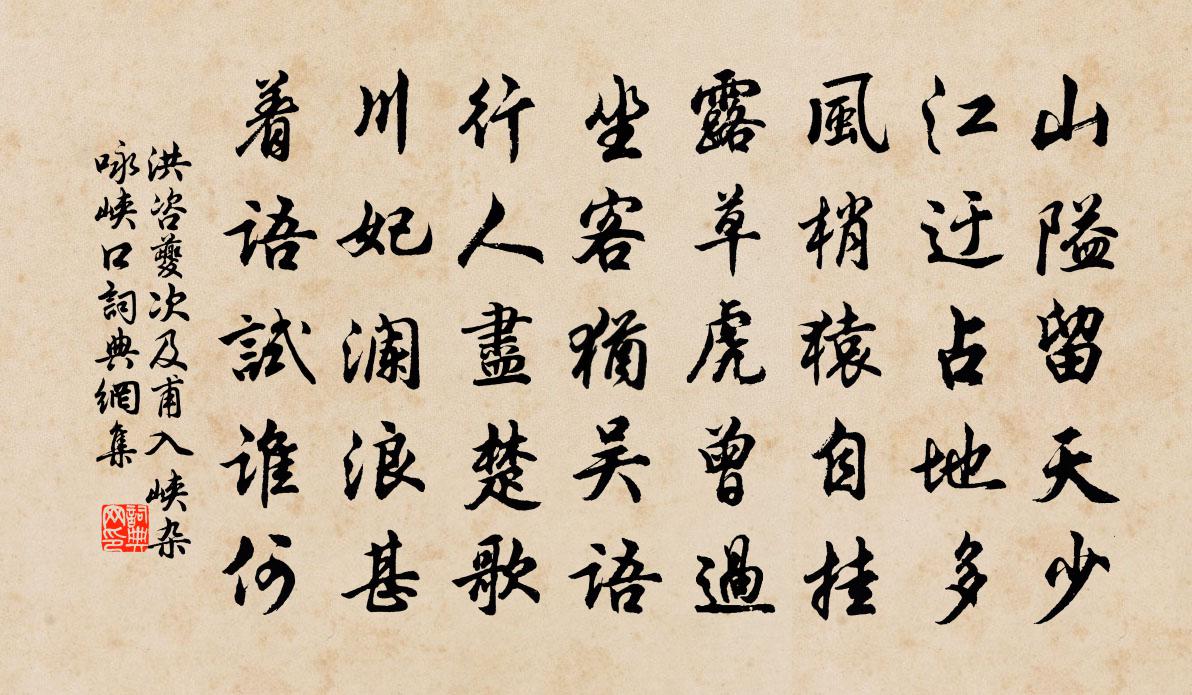 山隘留天少
江迂占地多
風梢猿自挂
露草虎曾過
坐客猶吴語
行人盡楚歌
川妃澜浪甚
着語試誰何
洪咨夔次及甫入峡杂
咏峡口詞典網集
詞典网印